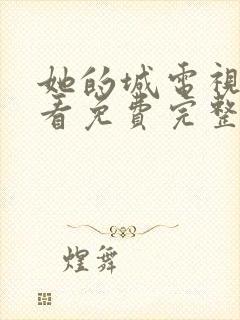 她的城電視
看免費完整
煌舞